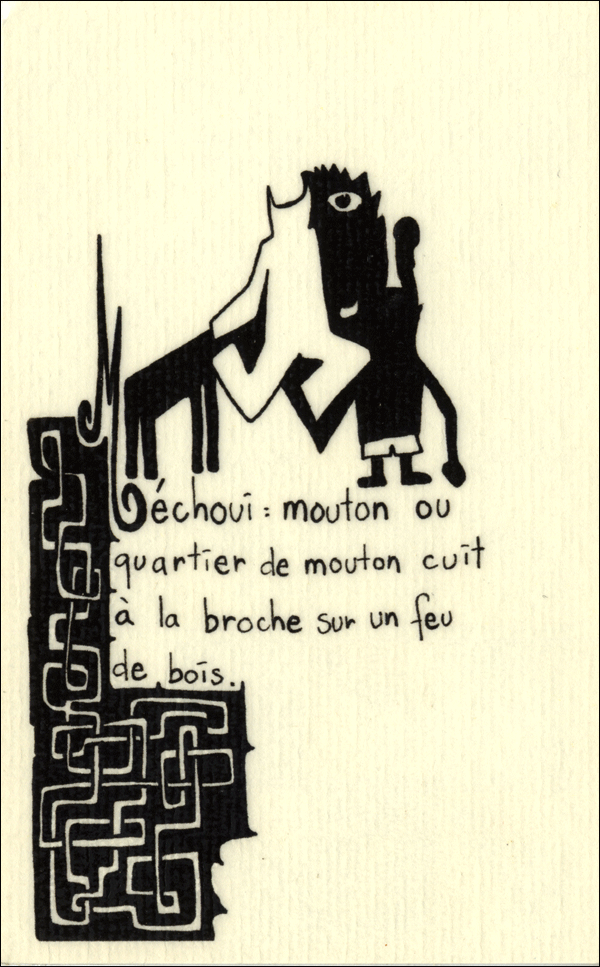 Méchoui : mouton ou
quartier de mouton cuit
à la broche sur un feu
de bois.